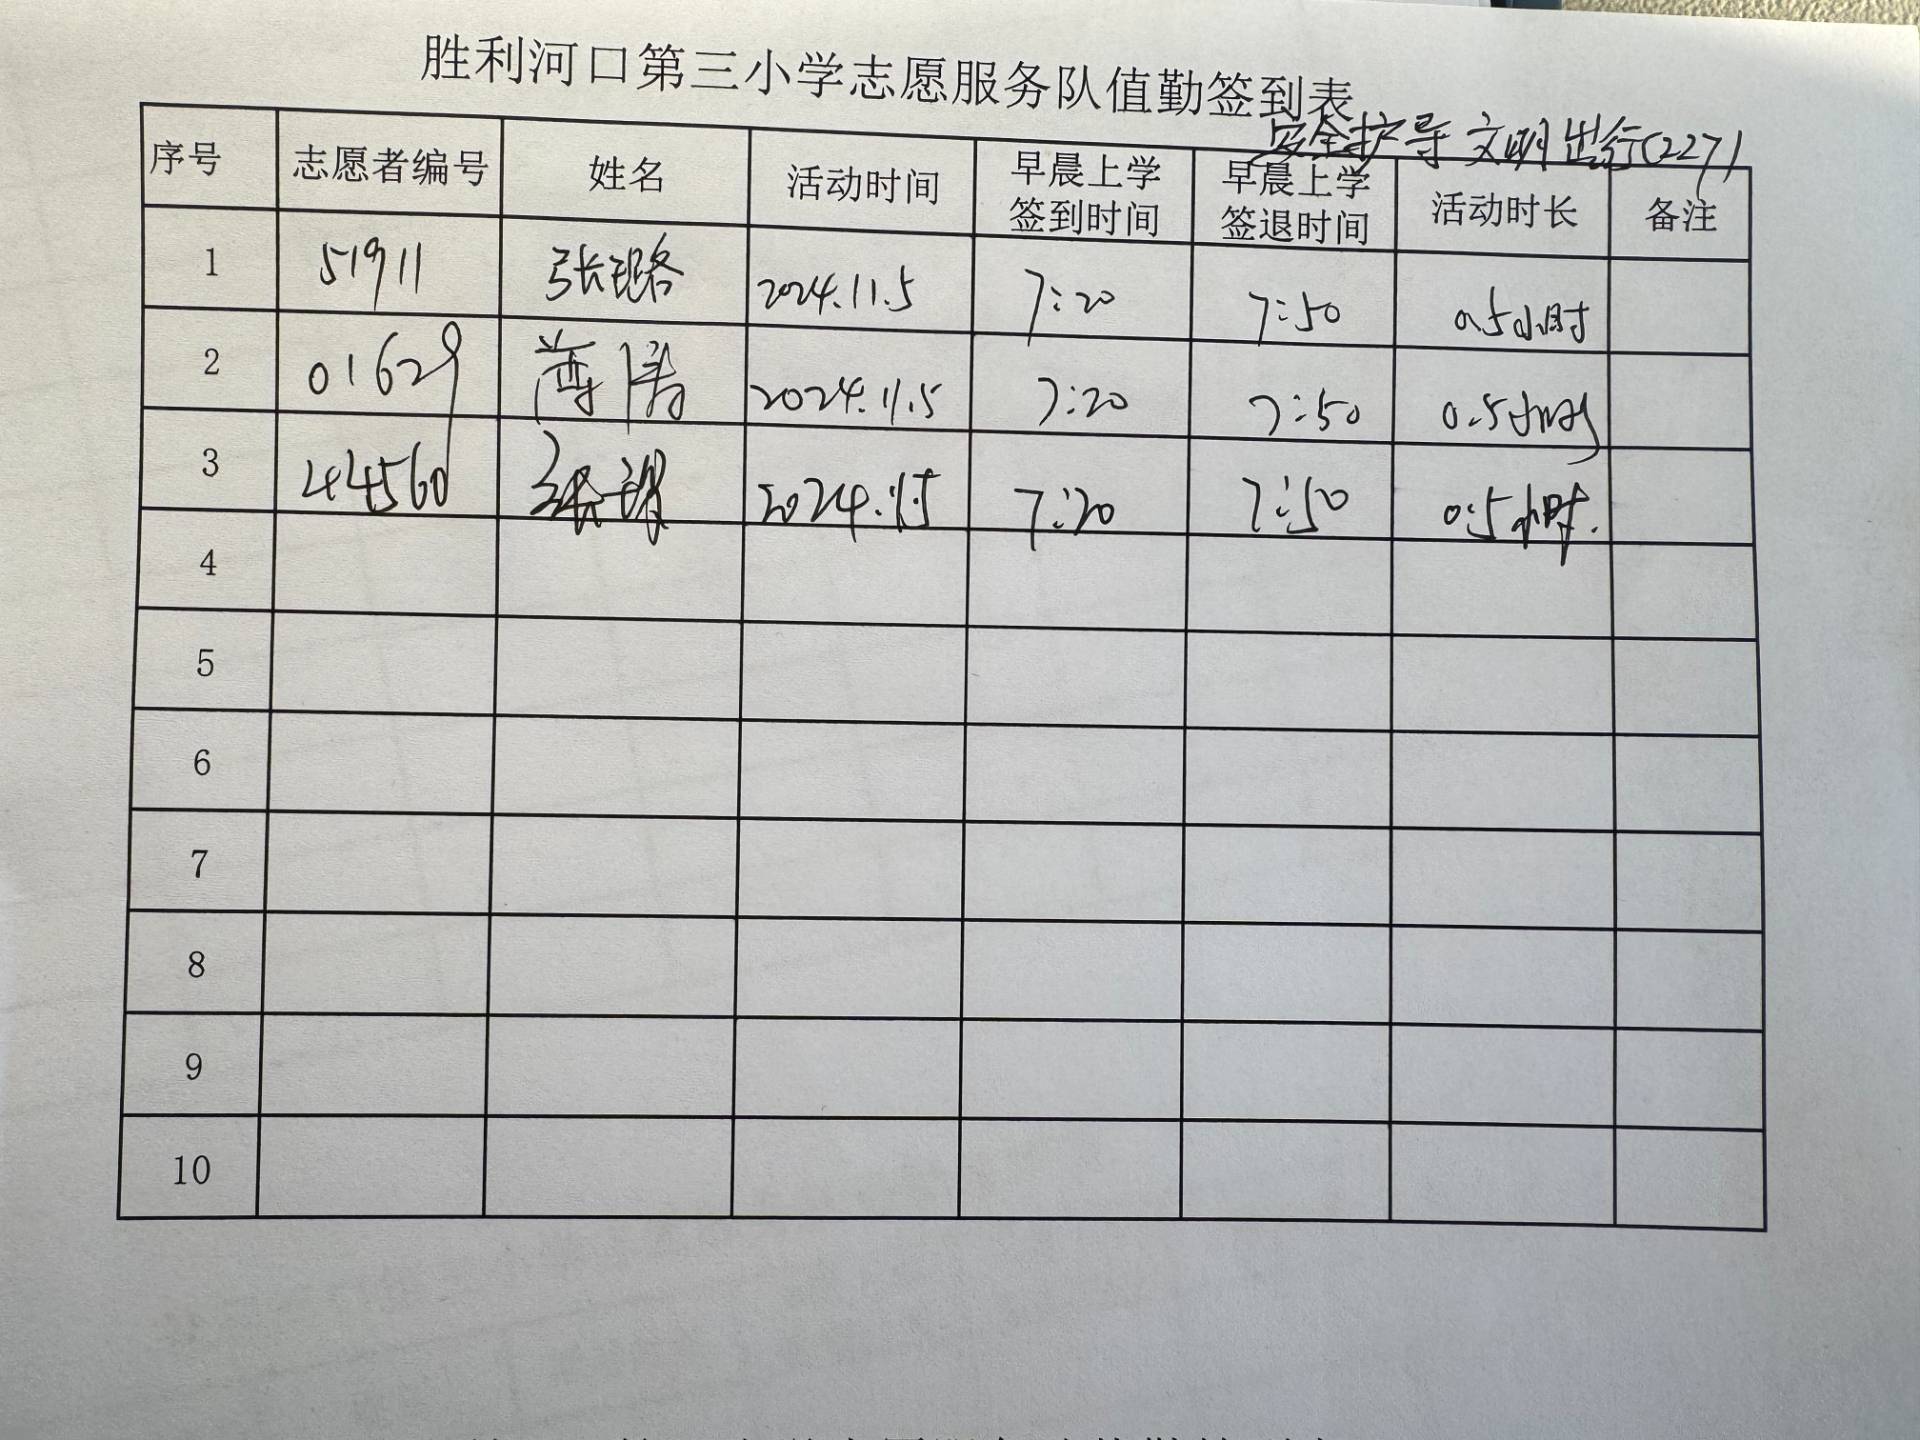 胜利河口第三小学志愿服务队值勤签到表
安全护导 文明出行(227)
序号 志愿者编号 姓名 活动时间 早晨上学签到时间 早晨上学签退时间 活动时长 备注
1 51911 张璐 2024.11.5 7:20 7:50 0.5小时
2 01629 2024.11.5 7:20 7:50 0.5小时
3 44560 张 2024.11.5 7:20 7:50 0.5小时.
4
5
6
7
8
9
10